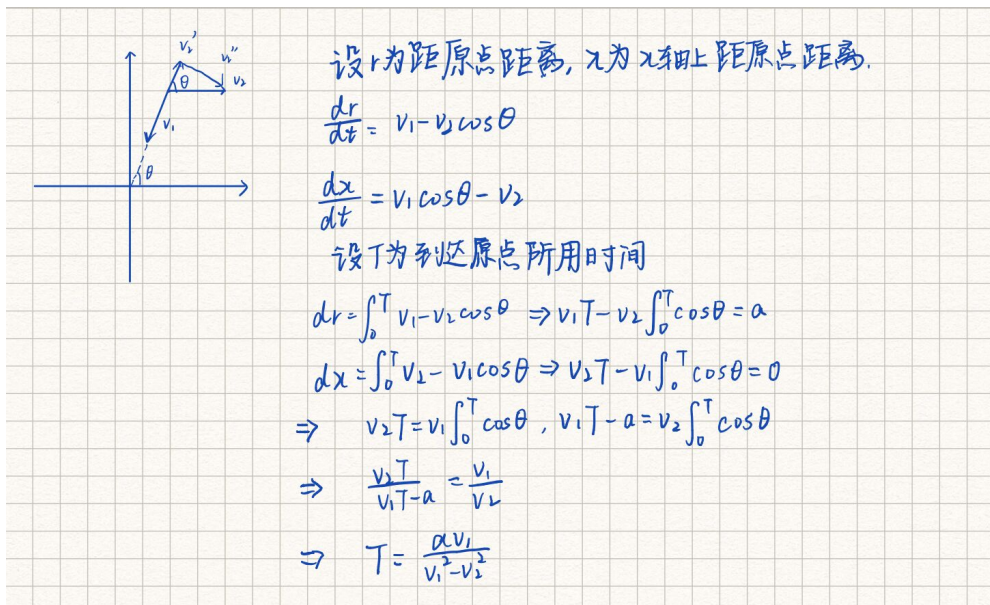 v₂' v₂'' v₂
θ
v₁
θ
设r为距原点距离, x为x轴上距原点距离.
dr/dt = v₁-v₂cosθ
dx/dt = v₁cosθ-v₂
设T为到达原点所用时间
dr=∫₀ᵀ v₁-v₂cosθ ⇒ v₁T-v₂∫₀ᵀcosθ=a
dx=∫₀ᵀv₂-v₁cosθ ⇒ v₂T-v₁∫₀ᵀcosθ=0
⇒ v₂T=v₁∫₀ᵀcosθ, v₁T-a=v₂∫₀ᵀcosθ
⇒ v₂T/(v₁T-a) = v₁/v₂
⇒ T= av₁/(v₁²-v₂²)